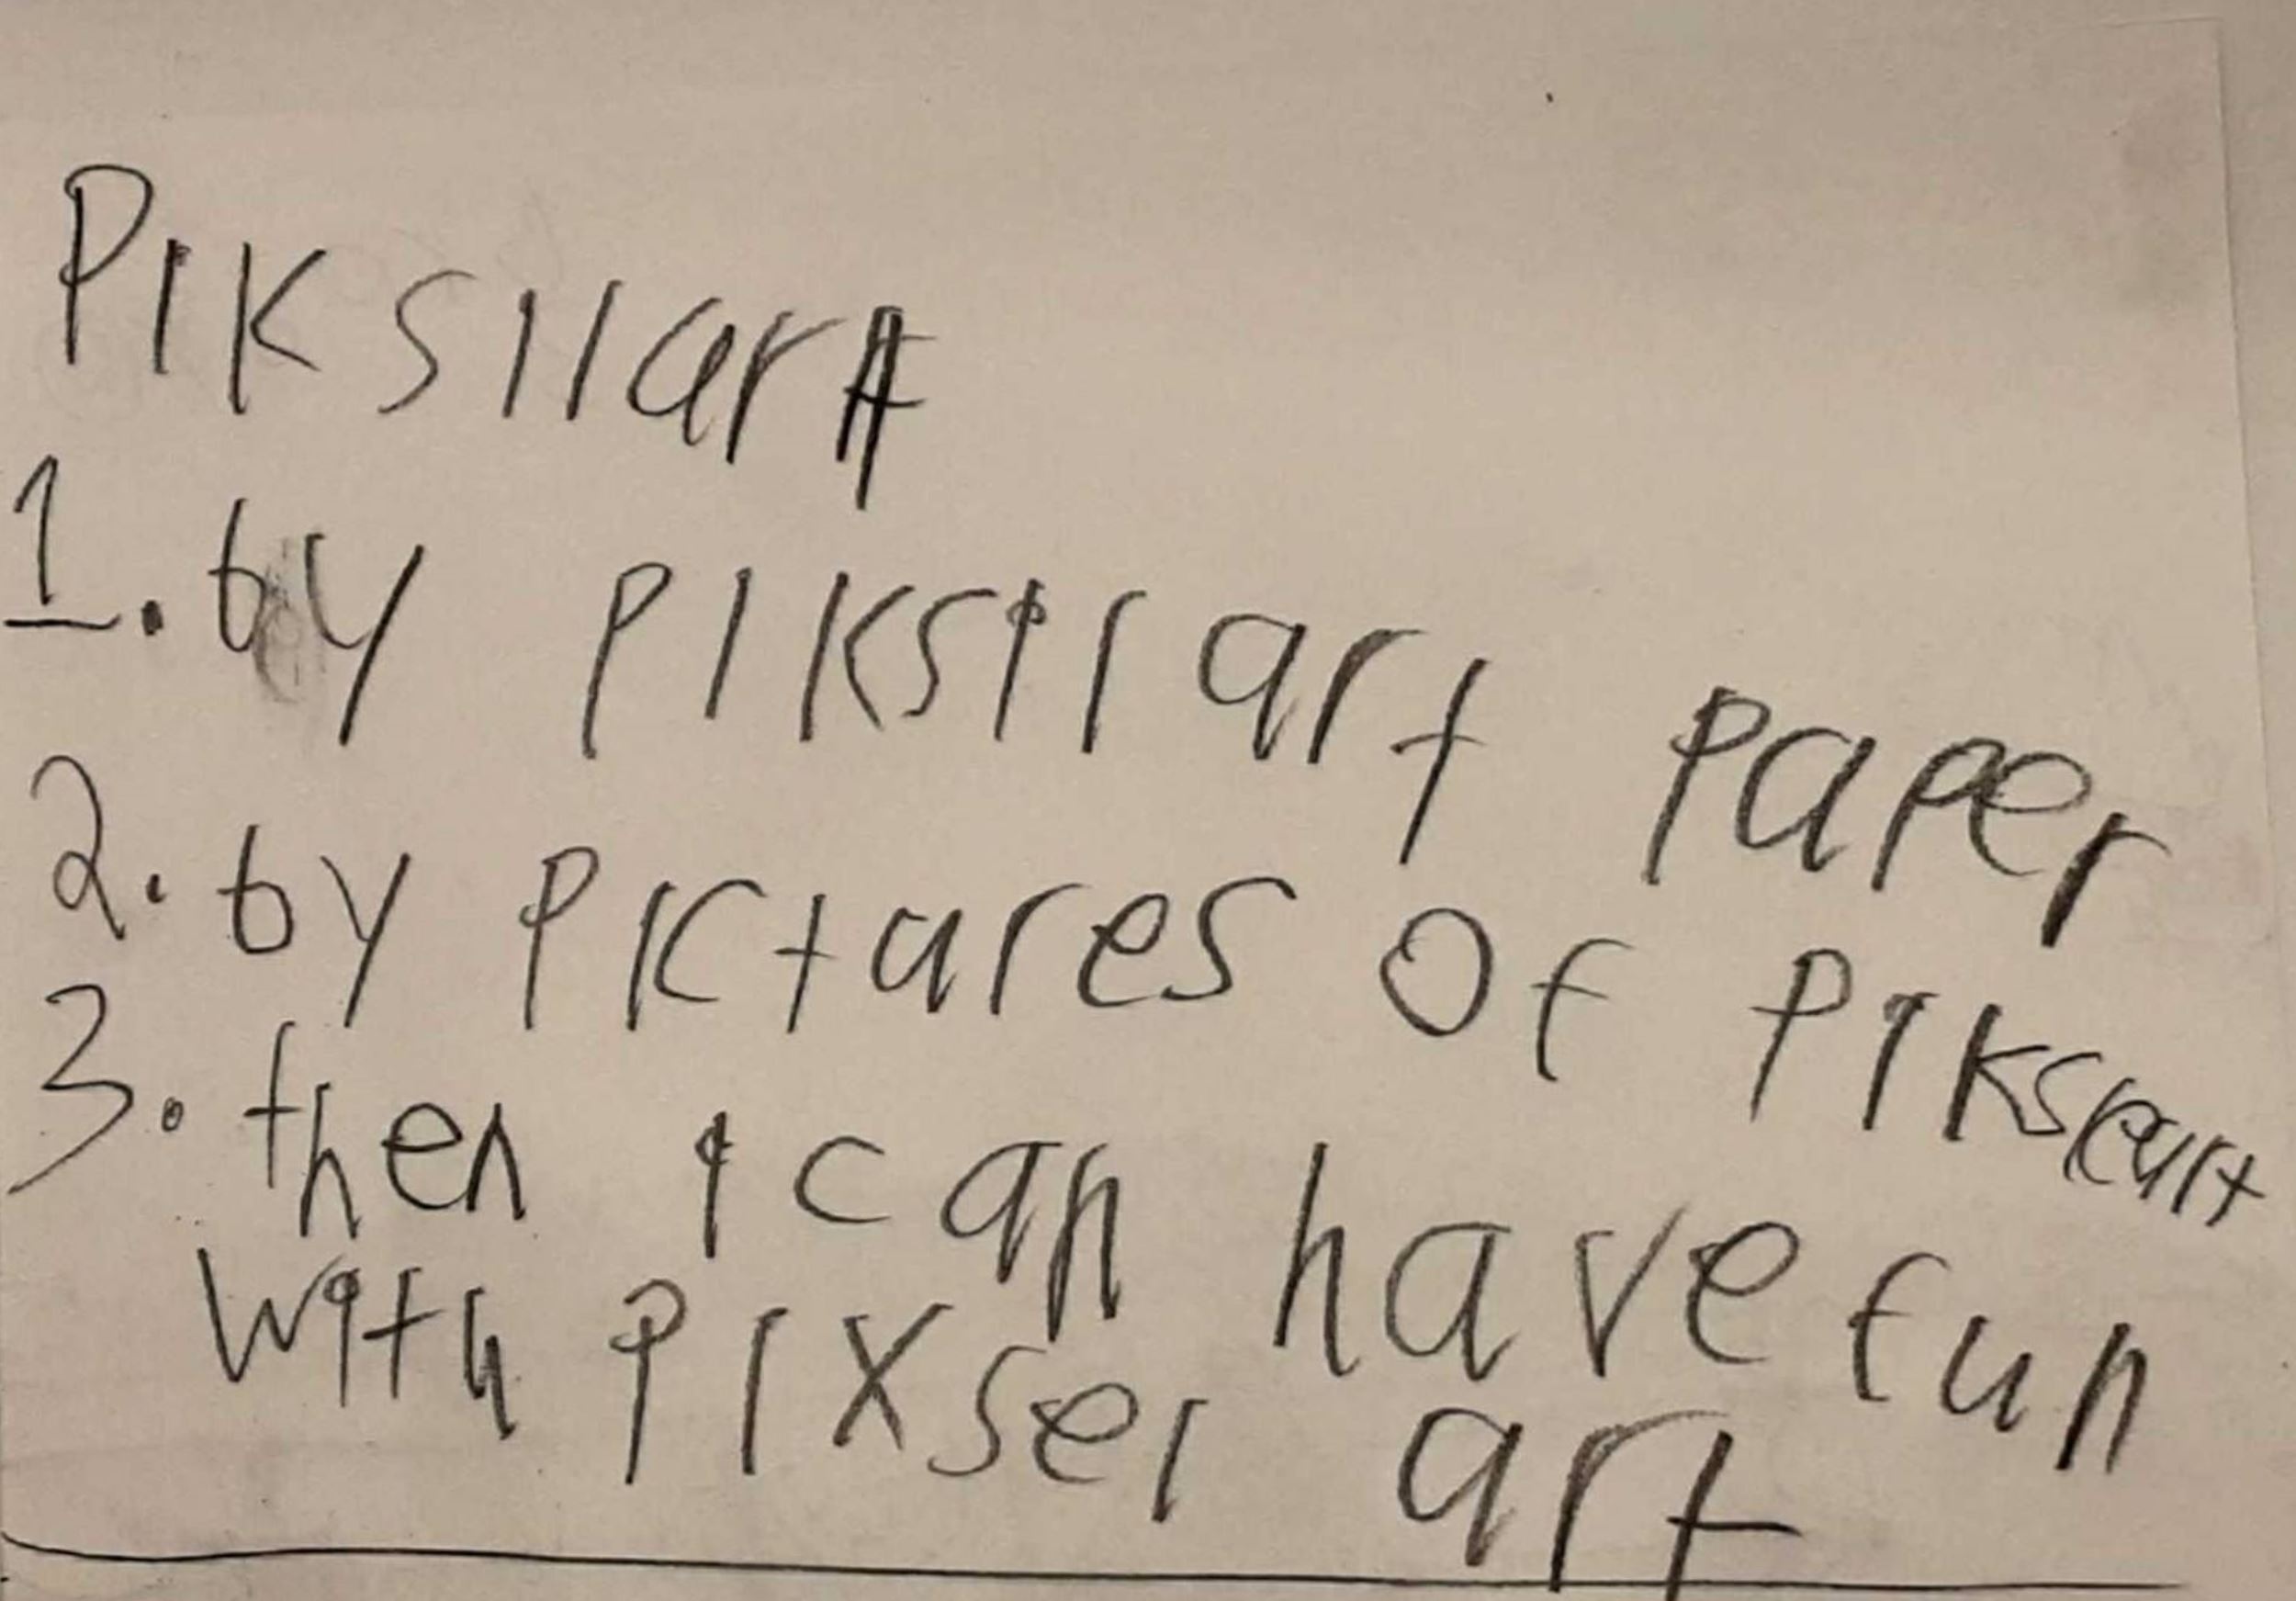 Piksil art
1. by piksil art paper
2. by pictures of piksleart
3. then i can have fun
with pixsel art